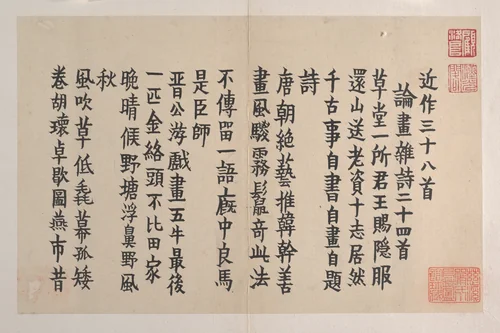 近作三十八首
論畫雜詩二十四首
草堂一所君王賜隱服
還山送老資十志居然
千古事自書自畫自題
詩
唐朝絕藝推韓幹善
畫風駿霧鬣奇此法
不傳留一語廄中良馬
是臣師
晉公游戲畫五牛最後
一匹金絡頭不比田家
晚晴候野塘浮鼻野風
秋
風吹草低毳幕孤矮
卷胡瓌卓歇圖燕市昔